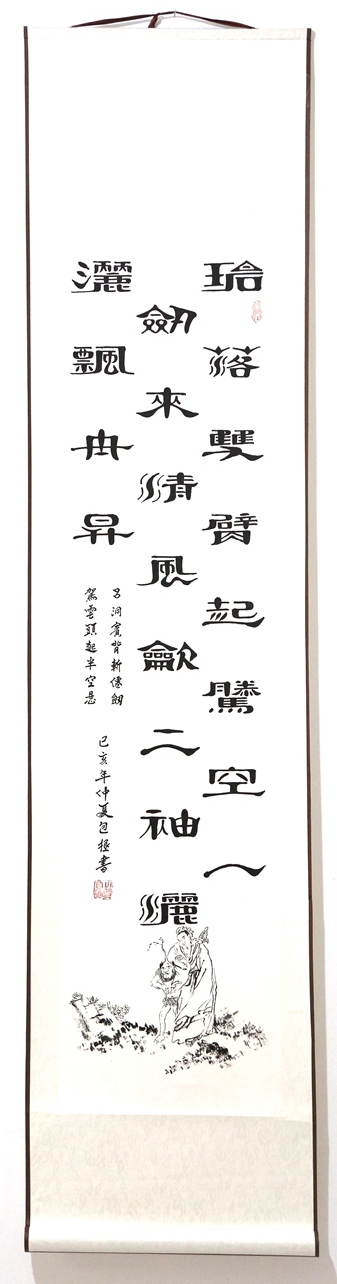 珨落雙臂起騰空一
劔來清風歛二袖灑
灑飄冉昇
呂洞賓背斬僊劔
駕雲頭起半空悬
己亥年仲夏包極書